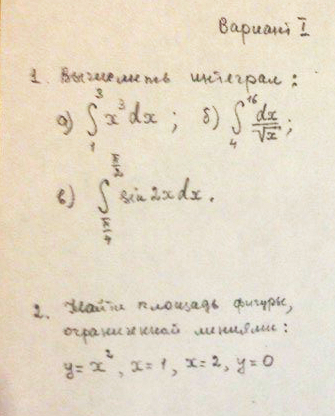 Вариант I
1. Вычислить интеграл:
а) ∫₁³ x³ dx ; б) ∫₄¹⁶ dx/√x ;
в) ∫_{π/4}^{π/2} sin 2x dx .
2. Найти площадь фигуры,
ограниженной линиями:
y = x², x = 1, x = 2, y = 0